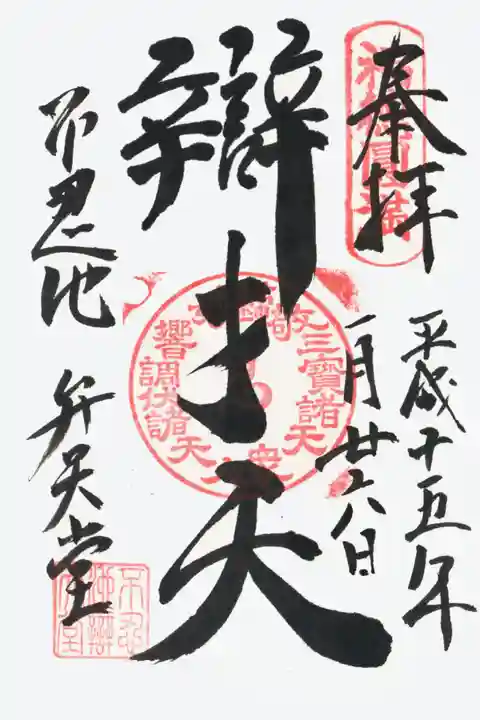 奉拝
平成十五年
一月廿六日
辯才天
不忍池
弁天堂
三寶諸天
響調伏諸天
不忍
池辯
天堂